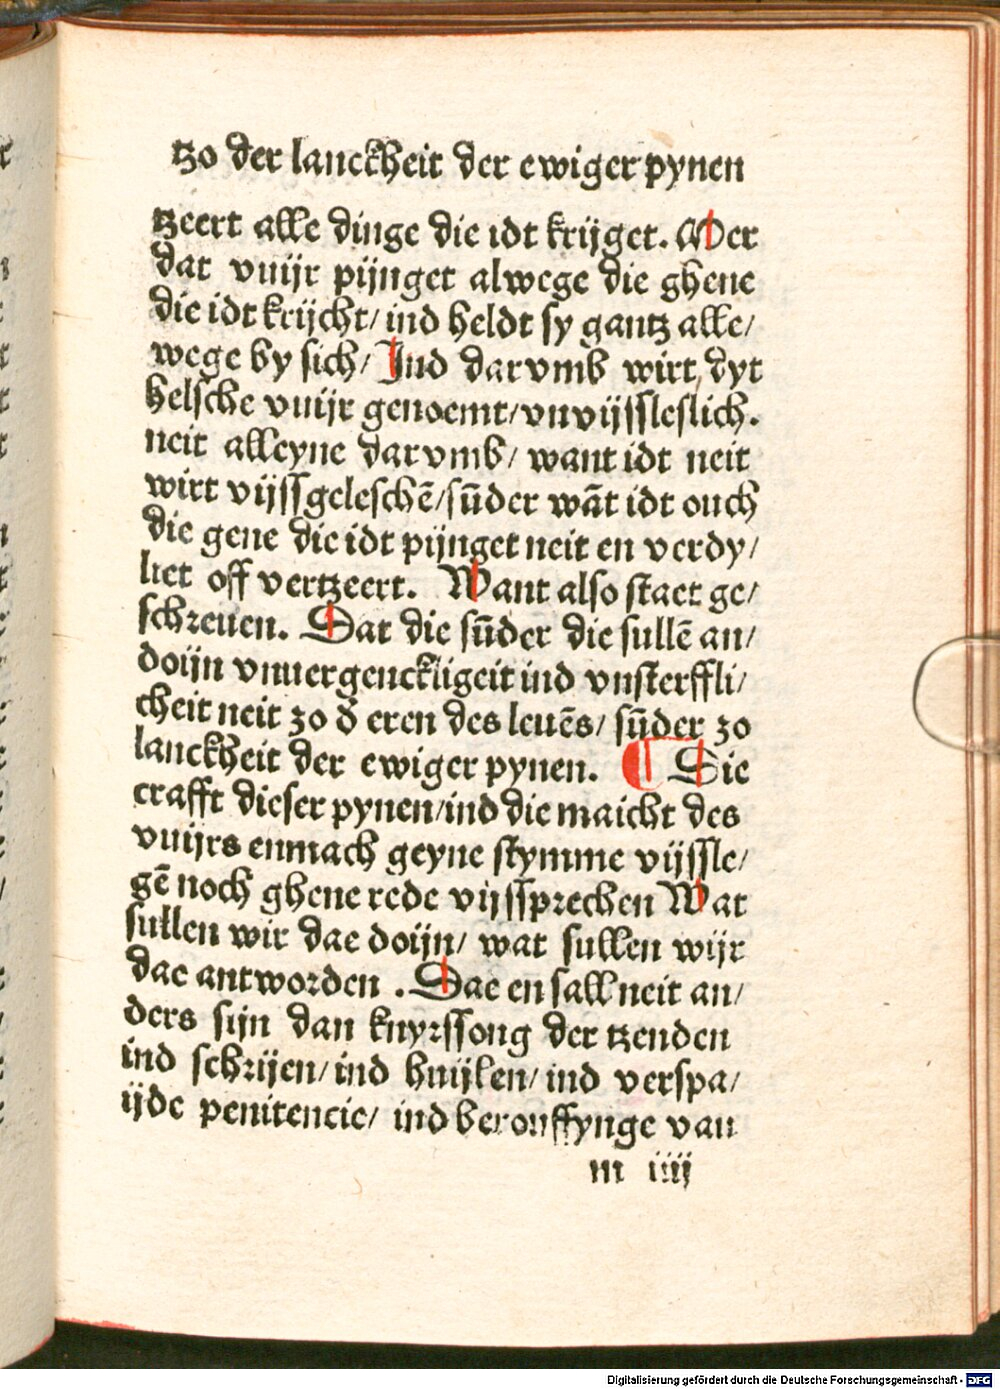 tzo der lanckheit der ewiger pynen
tzeert alle dinge die idt krijget. Mer
dat vuijr pijnget alwege die ghene
die idt krijcht/ ind heldt sy gantz alle/
wege by sich/ Ind darvmb wirt dyt
helsche vuijr genoemt/vnvijssleslich.
neit alleyne darvmb/ want idt neit
wirt vijssgeleschē/sūder wāt idt ouch
die gene die idt pijnget neit en verdy/
liet off vertzeert. Want also staet ge/
schreuen. Dat die sūder die sullē an/
doijn vnuergenckligeit ind vnsterffli/
cheit neit zo d eren des leuēs/ sūder zo
lanckheit der ewiger pynen. ¶ Die
crafft dieser pynen/ind die maicht des
vuijrs enmach geyne stymme vijssle/
gē noch ghene rede vijssprechen Wat
sullen wir dae doijn/ wat sullen wijr
dae antworden .Dae en sall neit an/
ders sijn dan knyrssong der tzenden
ind schrijen/ind huijlen/ind verspa/
ijde penitencie/ ind berouffynge van
m iiij
Digitalisierung gefördert durch die Deutsche Forschungsgemeinschaft - DFG